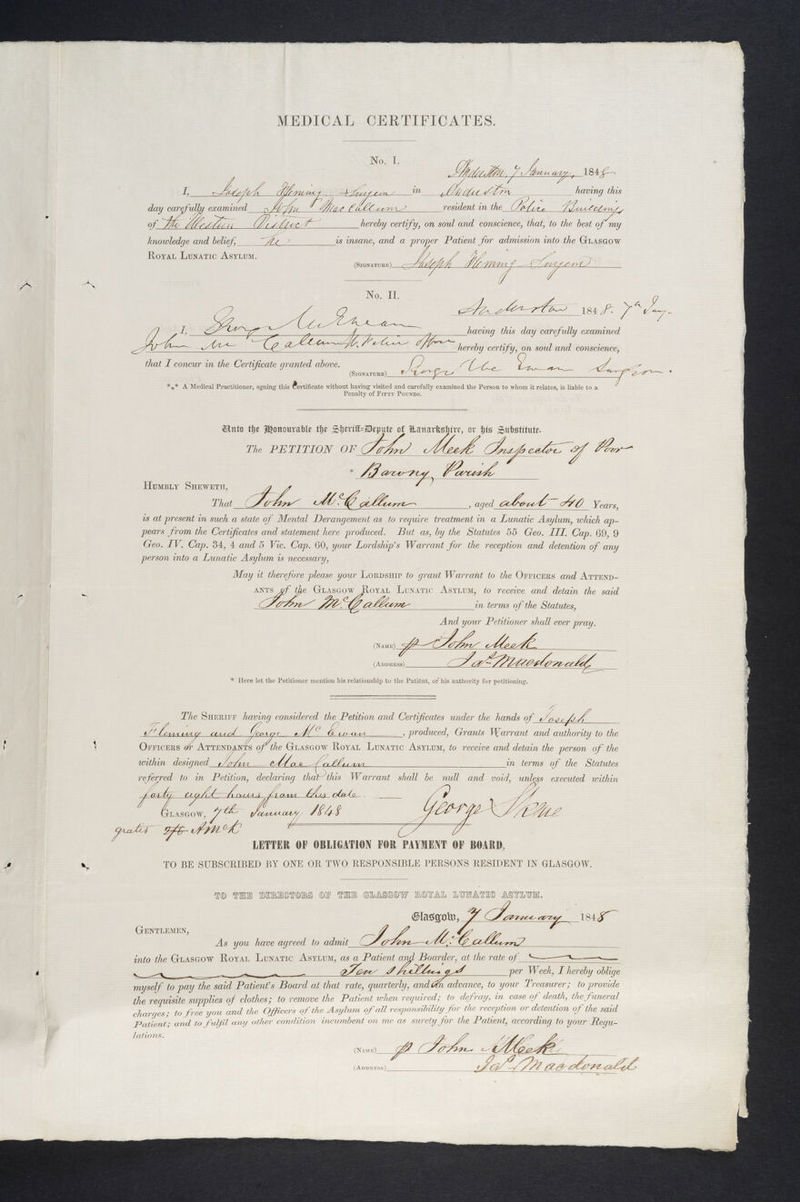 MEDICAL CERTIFICATES.
No. I.
Anderston, 7 January, 1848
I, Joseph Fleming Surgeon in Anderston having this
day carefully examined John MacCallum resident in the Police Buildings
of the Western District hereby certify, on soul and conscience, that, to the best of my
knowledge and belief, he is insane, and a proper Patient for admission into the GLASGOW
ROYAL LUNATIC ASYLUM.
(SIGNATURE) Joseph Fleming Surgeon
No. II.
Anderston 1848. 7th Jany.
I, George McEwan having this day carefully examined
John McCallum in Police Office hereby certify, on soul and conscience,
that I concur in the Certificate granted above.
(SIGNATURE) George McEwan Surgeon.
*** A Medical Practitioner, signing this Certificate without having visited and carefully examined the Person to whom it relates, is liable to a
Penalty of FIFTY POUNDS.
Unto the Honourable the Sheriff-Depute of Lanarkshire, or his Substitute.
The PETITION OF John Meek Inspector of Poor
* Barony Parish
HUMBLY SHEWETH,
That John McCallum, aged about 40 Years,
is at present in such a state of Mental Derangement as to require treatment in a Lunatic Asylum, which ap-
pears from the Certificates and statement here produced. But as, by the Statutes 55 Geo. III. Cap. 69, 9
Geo. IV. Cap. 34, 4 and 5 Vic. Cap. 60, your Lordship's Warrant for the reception and detention of any
person into a Lunatic Asylum is necessary,
May it therefore please your LORDSHIP to grant Warrant to the OFFICERS and ATTEND-
ANTS of the GLASGOW ROYAL LUNATIC ASYLUM, to receive and detain the said
John McCallum in terms of the Statutes,
And your Petitioner shall ever pray.
(NAME) p John Meek
(ADDRESS) Jas Macdonald
* Here let the Petitioner mention his relationship to the Patient, or his authority for petitioning.
The SHERIFF having considered the Petition and Certificates under the hands of Joseph
Fleming and George McEwan, produced, Grants Warrant and authority to the
OFFICERS or ATTENDANTS of the GLASGOW ROYAL LUNATIC ASYLUM, to receive and detain the person of the
within designed John MacCallum in terms of the Statutes
referred to in Petition, declaring that this Warrant shall be null and void, unless executed within
forty eight hours from this date.
GLASGOW, 7th January 1848 George Skene
gratis
LETTER OF OBLIGATION FOR PAYMENT OF BOARD,
TO BE SUBSCRIBED BY ONE OR TWO RESPONSIBLE PERSONS RESIDENT IN GLASGOW.
TO THE DIRECTORS OF THE GLASGOW ROYAL LUNATIC ASYLUM.
Glasgow, 7 January 1848
GENTLEMEN,
As you have agreed to admit John McCallum
into the GLASGOW ROYAL LUNATIC ASYLUM, as a Patient and Boarder, at the rate of
Ten Shillings per Week, I hereby oblige
myself to pay the said Patient's Board at that rate, quarterly, and in advance, to your Treasurer; to provide
the requisite supplies of clothes; to remove the Patient when required; to defray, in case of death, the funeral
charges; to free you and the Officers of the Asylum of all responsibility for the reception or detention of the said
Patient; and to fulfil any other condition incumbent on me as surety for the Patient, according to your Regu-
lations.
(NAME) p John Meek
(ADDRESS) Jas Macdonald